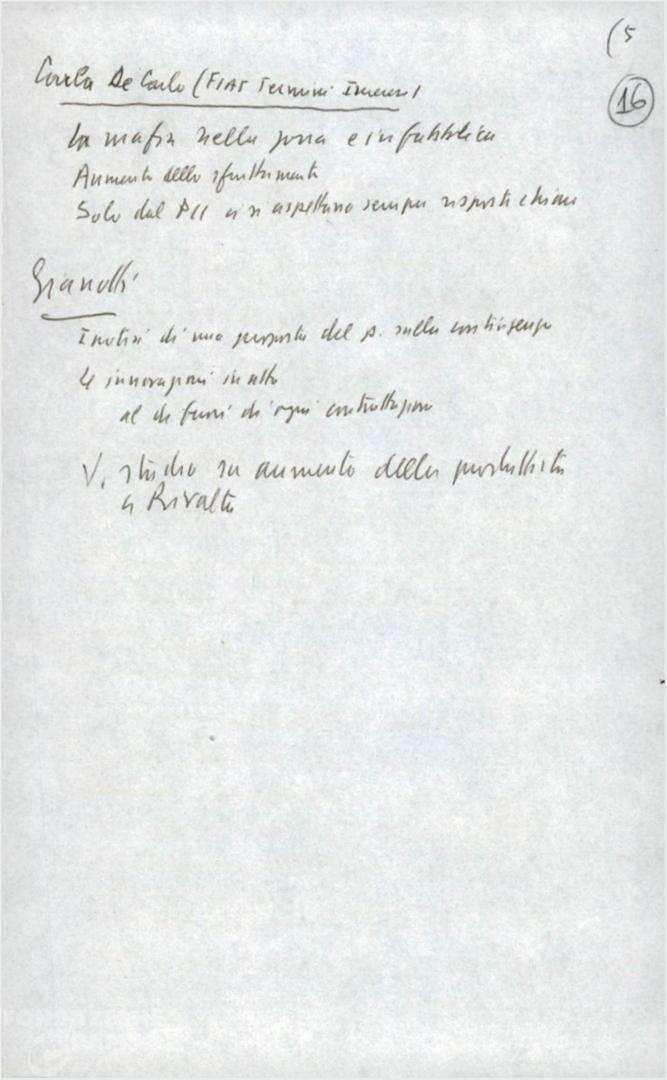 (5
16
De Carlo (FIAT Termini Imerese)
La mafia nella zona e in fabbrica
Aumento dello sfruttamento
Solo dal PCI ci si aspettano sempre risposte chiare
Gianotti
di una proposta del p. sulla contingenza
Le innovazioni in atto
al di fuori di ogni contrattazione
V. studio su aumento della produttività
a Rivalta